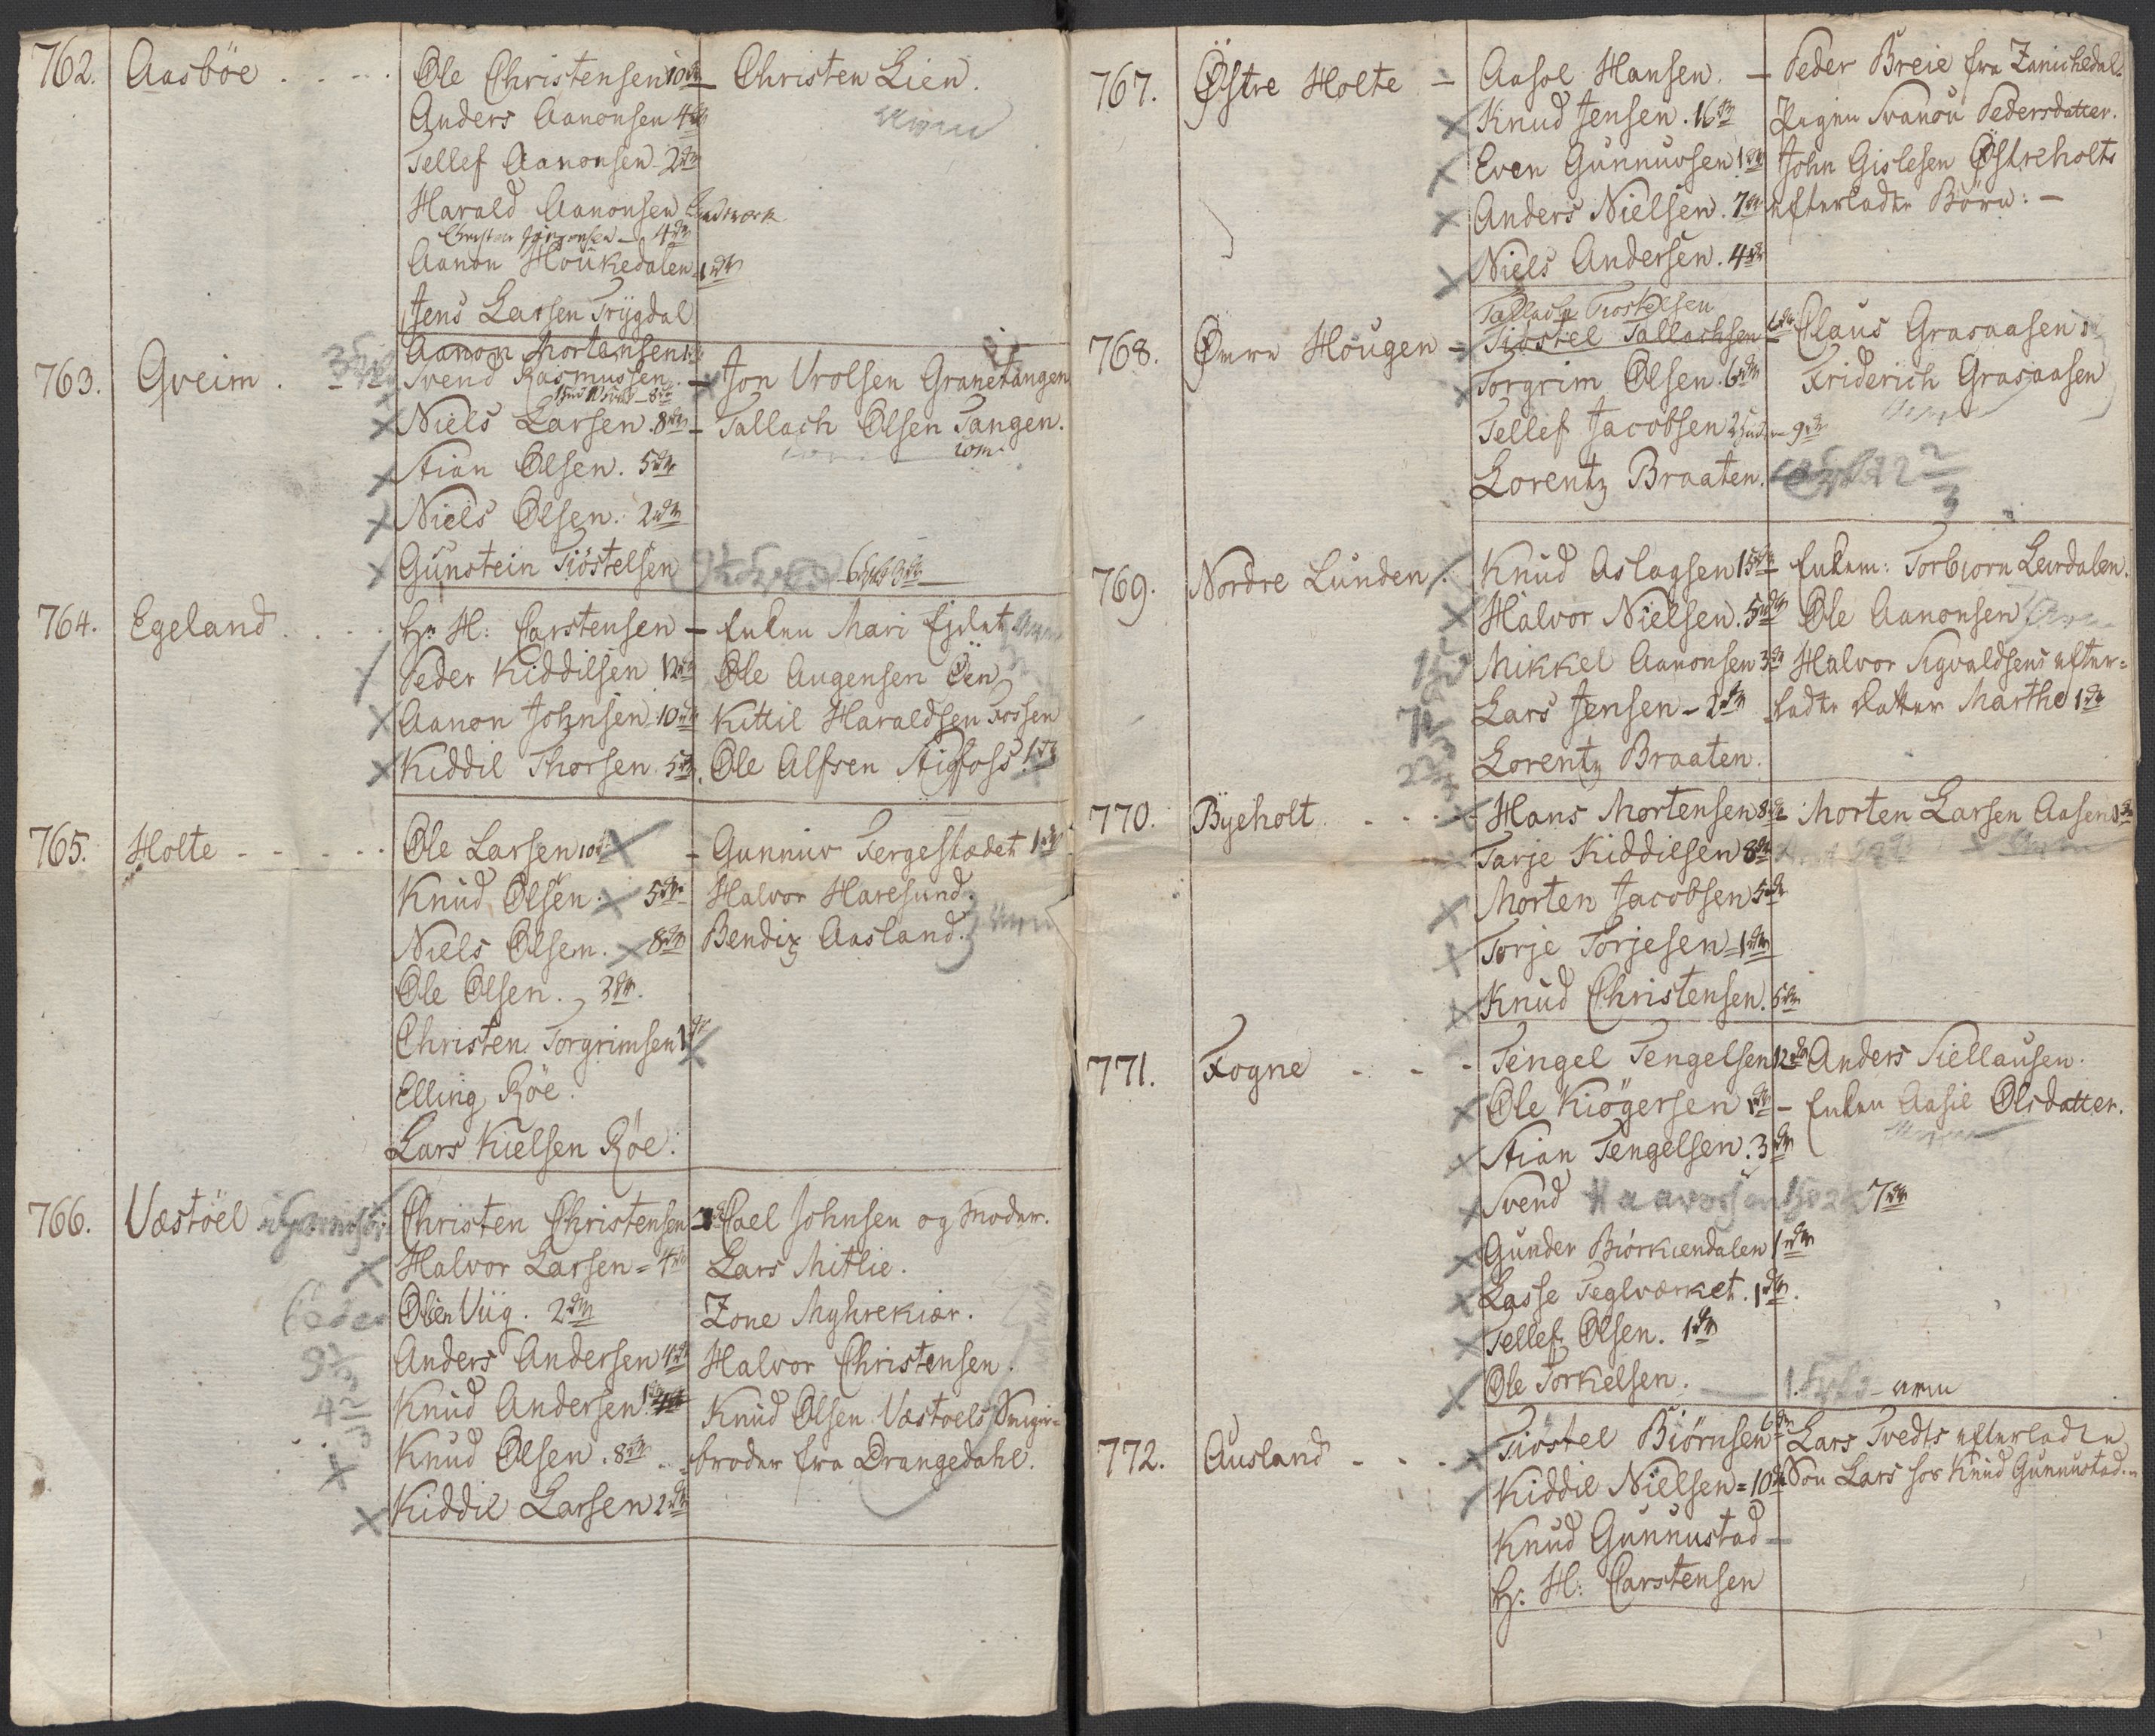 762. Aasböe . . . . Ole Christensen 10 — Christen Lien.
Anders Aanonsen 4
Tellef Aanonsen - 2
Harald Aanonsen
4
Aanon Houkedalen 1
Jens Larsen Trygdal
Aanon Mortensen
763. Qveim . Svend Rasmussen. — Jon Vrolsen Granetangen
Niels Larsen . 8 — Tallach Olsen Tangen.
Stian Olsen. 5
Niels Olsen. 2
Gunstein Tiöstelsen
764. Egeland . . . . Hr. H: Carstensen — Enken Mari
Peder Kiddilsen 12 Ole Augensen Öen
Aanon Johnsen 10 Kittil Haraldsen Fossen
Kiddil Thorsen 5 Ole Alfsen Stigfoss.
765. Holte - - - - - Ole Larsen 10 — Gunnuv Fergestædet 1
Knud Olsen. 5 Halvor Haresund.
Niels Olsen. 8 Bendix Aasland.
Ole Olsen. 3
Christen Torgrimsen 1
Elling Röe.
Lars Kielsen Röe.
766. Væstöel Christen Christensen — Cael Johnsen og Moder.
Halvor Larsen = 4 Lars Mitlie.
Olien Viig. 2 Zone Myhrekiær.
Anders Andersen 4 Halvor Christensen.
Knud Andersen Knud Olsen Væstoels Sviger-
Knud Olsen . 8 broder fra Drangedahl.
Kiddil Larsen 2
767. Östre Holte — Aasol Hansen. — Peder Breie fra Zanichedal.
Knud Jensen . 16 Pigen Svanou Pedersdatter.
Even Gunnuvsen 1 John Gislesen Östreholts
Anders Nielsen . 7 efterladte Börn: —
Niels Andersen . 4
Tallach Tiostelsen
768. Övre Hougen — Tiöstel Tallachsen 6 Claus Grasaasen
Torgrim Olsen . 6 Friderich Grasaasen
Tellef Jacobsen 9
Lorentz Braaten.
769. Nordre Lunden . Knud Aslagsen 15 Enkem: Torbiorn Leirdalen.
Halvor Nielsen. 5 Ole Aanonsen
Mikkel Aanonsen 3 Halvor Sigvaldsens efter-
Lars Jensen - 2 ladte Datter Marthe 1
Lorentz Braaten.
770. Byeholt . . . . Hans Mortensen 8 Morten Larsen Aasen
Tarje Kiddilsen 8
Morten Jacobsen 5
Torje Torjesen = 1
Knud Christensen. 5
771. Fogne - - - Tengel Tengelsen 12 Anders Siellausen.
Ole Kiögersen 1 — Enken Aasil Olsdatter.
Stian Tengelsen . 3
Svend Haavorsen 7
Gunder Biörkændalen 1
Lasse Teglværket . 1
Tellef Olsen. 1
Ole Torkelsen.
772. Ausland - - - Tiöstel Biörnsen 6 Lars Tvedts efterladte
Kiddil Nielsen = 10 Sön Lars hos Knud Gunnustad.
Knud Gunnustad —
Hr. H: Carstensen